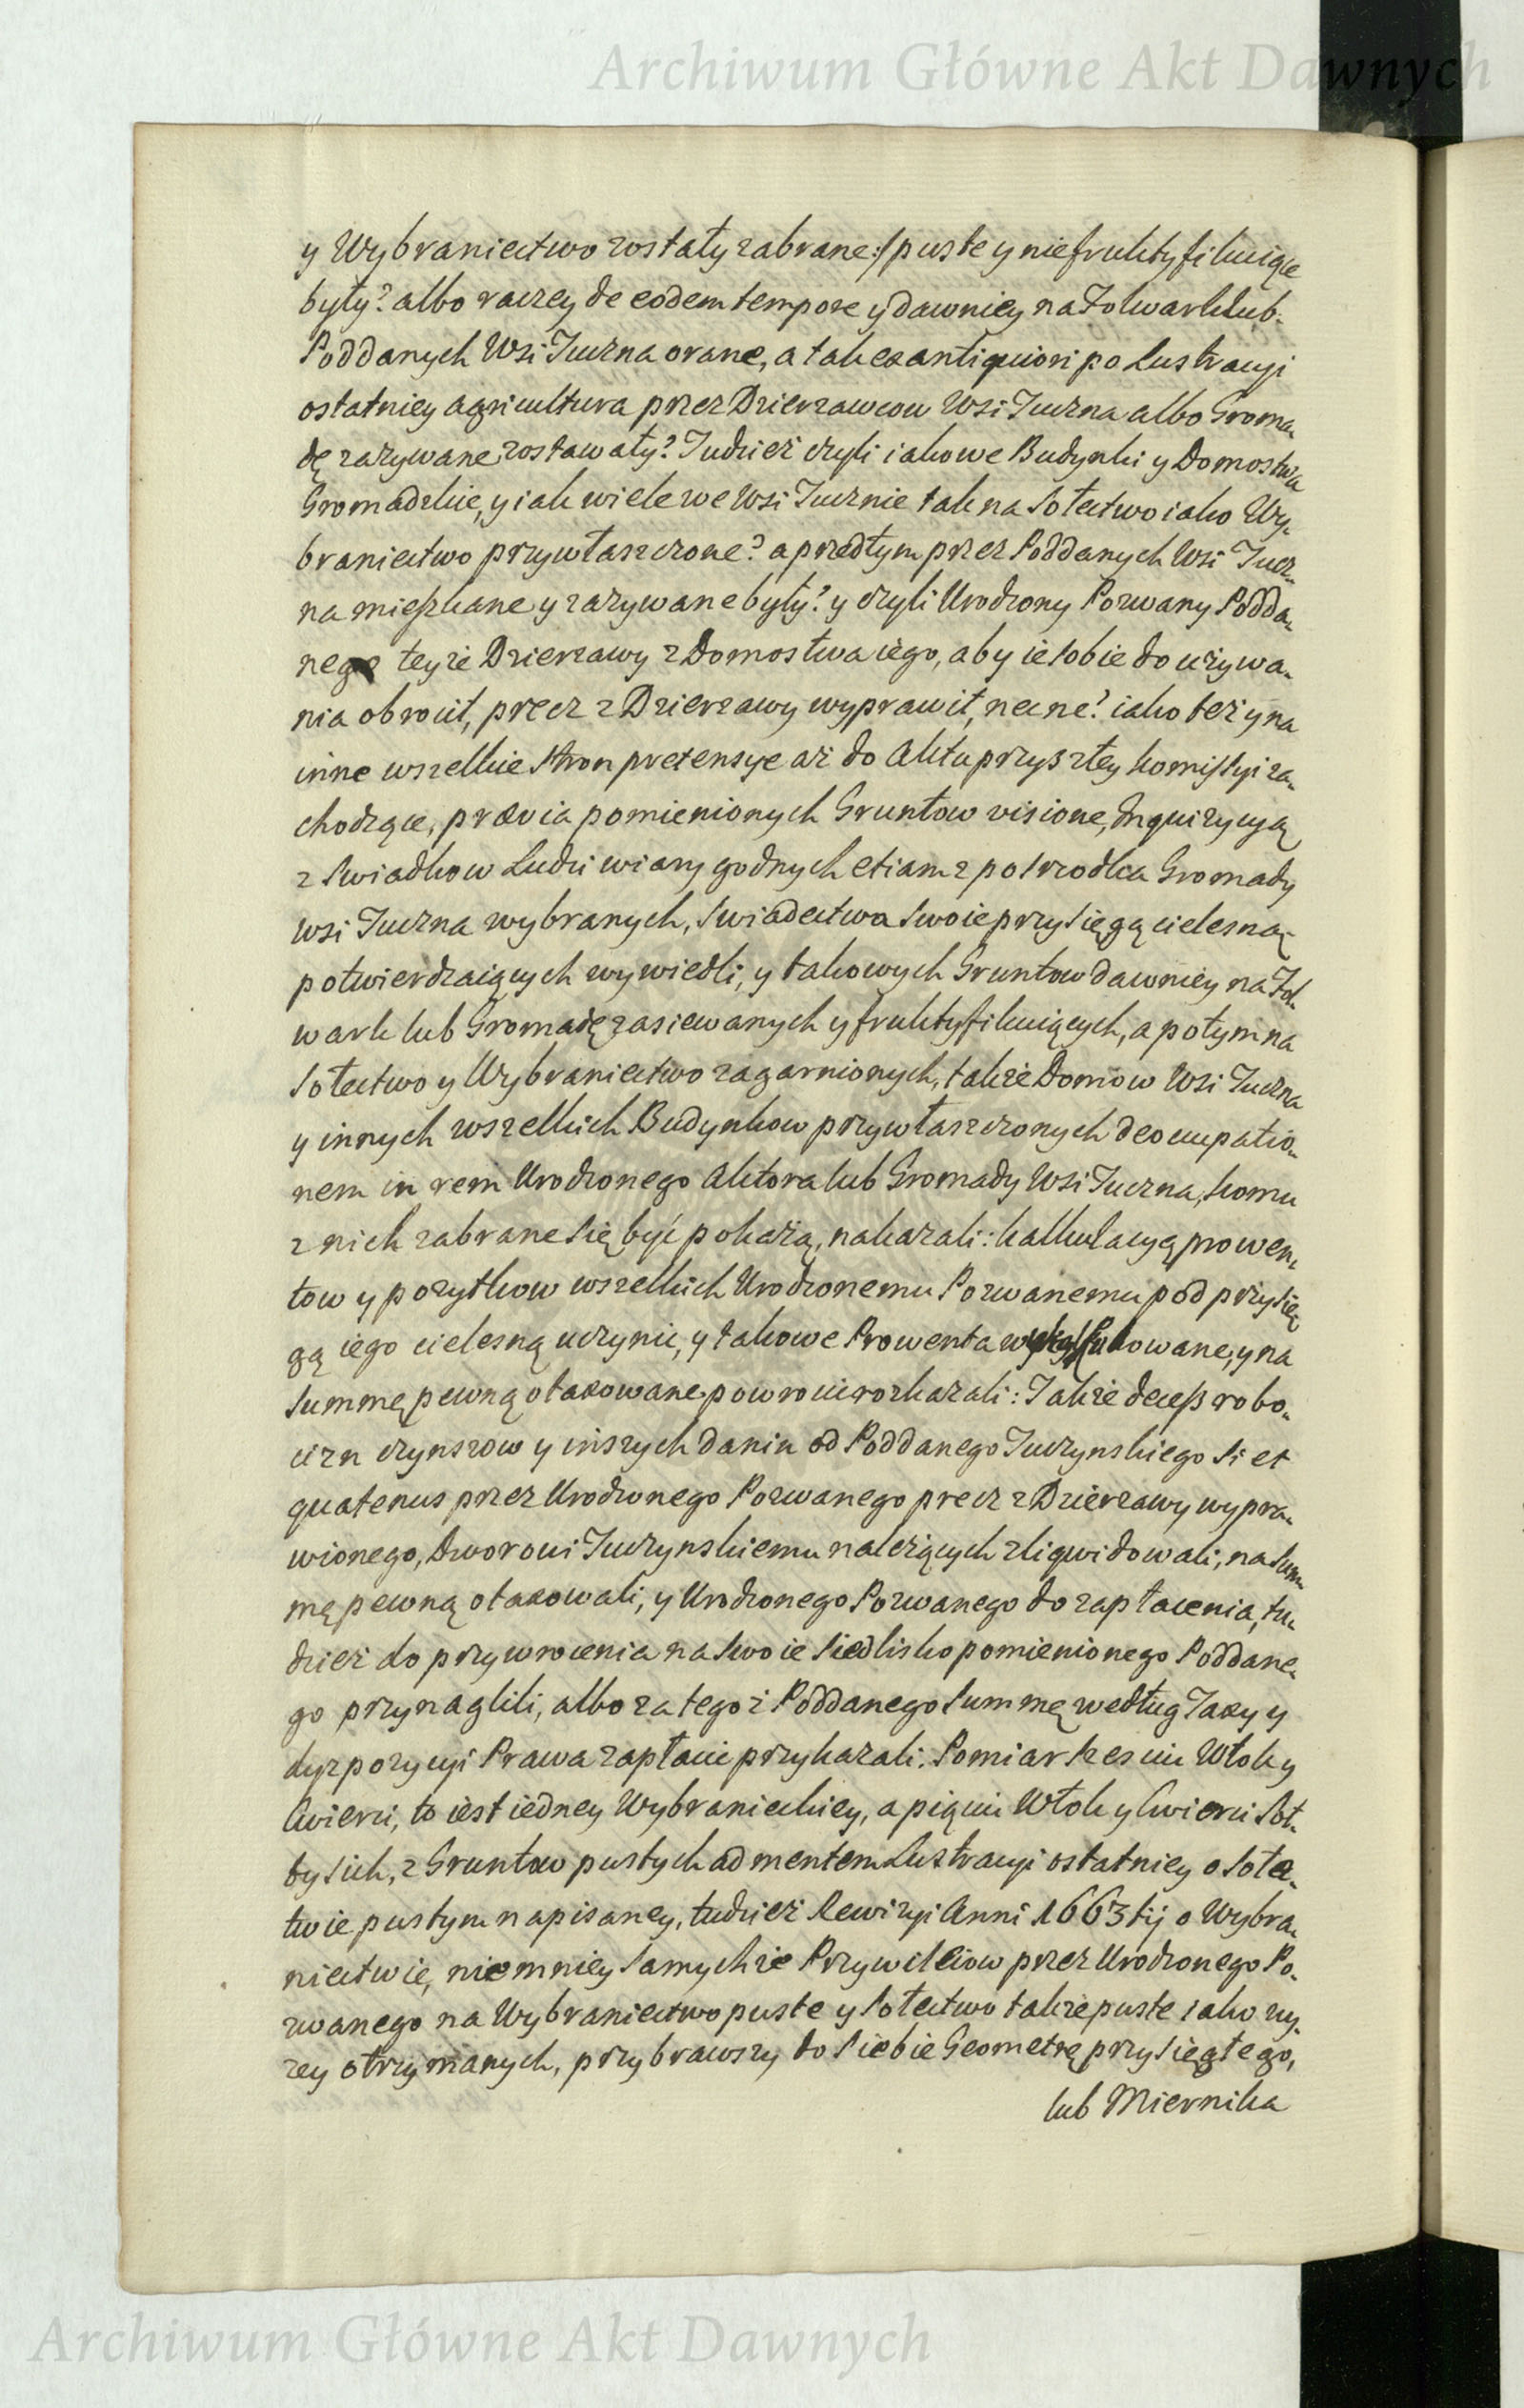 Archiwum Główne Akt Dawnych
y Wybraniectwo zostały zabrane:/ puste y niefruktyfikuiące
były? albo raczey de eodem tempore y dawniey na Folwark lub
Poddanych Wsi Tuczna orane, a tak ex antiquiori po Lustracyi
ostatniey agricultura przez Dzierzawcow Wsi Tuczna albo Groma-
dę zazywane zostawały? Tudzież czyli iakowe Budynki y Domostwa
Gromadzkie, y iak wiele we Wsi Tucznie tak na Sołectwo iako Wy-
braniectwo przywłaszczone? a przedtym przez Poddanych Wsi Tucz-
na mieszkane y zazywane były? y czyli Urodzony Pozwany Podda-
nego teyże Dzierzawy z Domostwa iego, aby ie sobie do używa-
nia obrocił, precz z Dzierzawy wyprawił, necne? iako też y na
inne wszelkie Stron pretensye aż do Aktu przyszłey Kommissyi za-
chodzące, prævia pomienionych Gruntow visione, Inquizycyą
z Swiadkow Ludzi wiary godnych etiam z posrzodka Gromady
Wsi Tuczna wybranych, Swiadectwa Swoie przysięgą cielesną
potwierdzaiących wywiedli, y takowych Gruntow dawniey na Fol-
wark lub Gromadę zasiewanych y fruktyfikuiących, a potym na
Sołectwo y Wybraniectwo zagarnionych, także Domow Wsi Tuczna
y innych wszelkich Budynkow przywłaszczonych deoccupatio-
nem in rem Urodzonego Aktora lub Gromady Wsi Tuczna, komu
z nich zabrane się być pokażą, nakazali: kalkulacyą prowen-
tow y pozytkow wszelkich Urodzonemu Pozwanemu pod przysię-
gą iego cielesną uczynić, y takowe Prowenta wykalkulowane, y na
Summę pewną otaxowane powrocić rozkazali: Także decess robo-
cizn czynszow y inszych danin od Poddanego Tuczynskiego si et
quatenus przez Urodzonego Pozwanego precz z Dzierzawy wypra-
wionego, Dworowi Tuczynskiemu należących zliqwidowali, na Sum-
mę pewną otaxowali, y Urodzonego Pozwanego do zapłacenia, tu-
dzież do przywrocenia na Swoie Siedlisko pomienionego Poddane-
go przynaglili, albo za tegoż Poddanego Summę według Taxy y
dyzpozycyi Prawa zapłacić przykazali. Pomiar sześciu Włok y
Cwierci, to iest iedney Wybranieckiey, a pięciu Włok y Cwierci Soł-
tysich, z Gruntow pustych ad mentem Lustracyi ostatniey o Sołe-
ctwie pustym napisaney, tudzież Rewizyi Anni 1663tij o Wybra-
niectwie, niemniey Samychże Przywileiow przez Urodzonego Po-
zwanego na Wybraniectwo puste y Sołectwo także puste iako wy-
zey otrzymanych, przybrawszy do Siebie Geometrę przysięgłego,
lub Miernika
Archiwum Główne Akt Dawnych